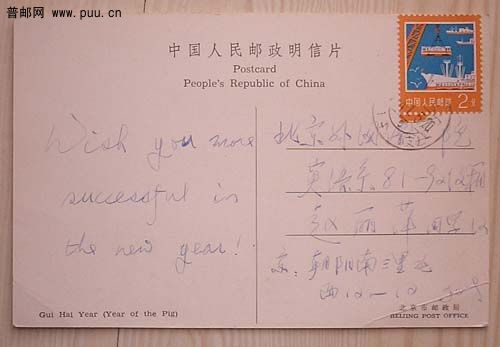 普邮网 www.puu.cn
中国人民邮政明信片
Postcard
People's Republic of China
中国人民邮政 2分
Wish you more
successful in
the new year!
北京外 院
英语系 81-
赵丽华同学
京.朝阳南三里屯
西
Gui Hai Year (Year of the Pig)
北京市邮政局
BEIJING POST OFFICE